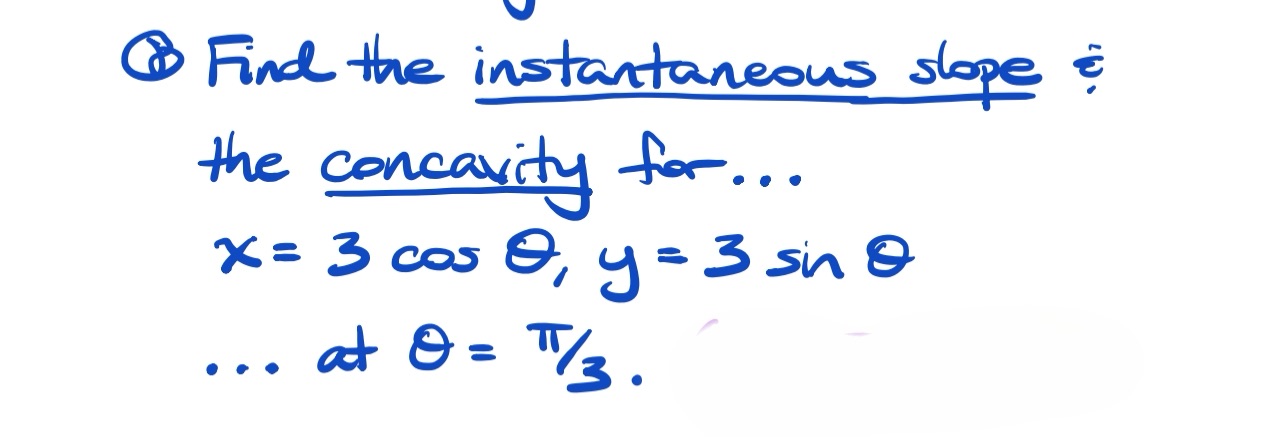 Find the instantaneous slope &
the concavity for...
x = 3 cos θ, y = 3 sin θ
... at θ = π/3.